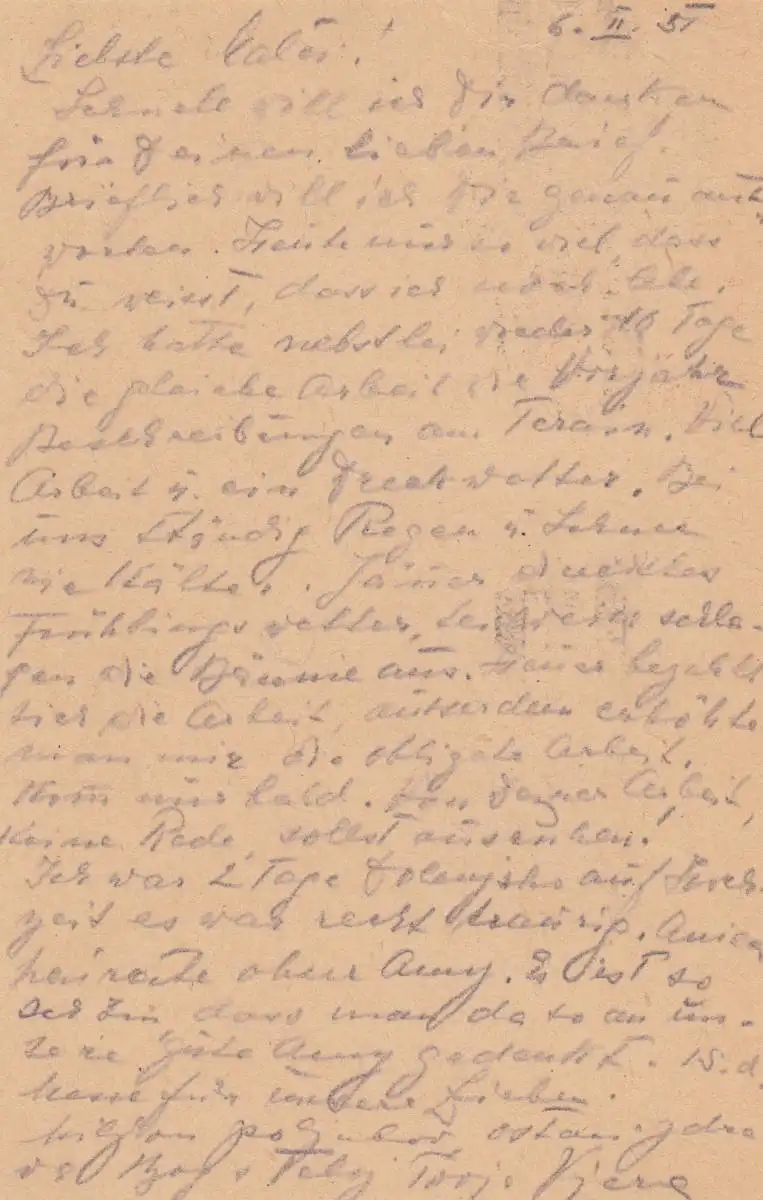 6. II. 51
Liebste
Schnell will ich Dir danken
für Deinen lieben Brief.
Brieflich will ich Dir genau ant-
worten. Heute nur so viel, dass
Du weisst, dass ich noch lebe.
Ich hatte nebstbei wieder 10 Tage
die gleiche Arbeit wie Vorjahr
Beschreibungen am Terain. Viel
Arbeit u. ein Dreckwetter. Bei
uns ständig Regen u. Schnee
wie Kälte. Jänner direktes
Frühlingswetter, schla-
gen die Bäume aus. Heuer bezahlt
sich die Arbeit, ausserdem erhöhte
man mir die obligate Arbeit.
Kom nur bald. Von Deiner Arbeit
keine Rede, sollst ausruhen!
Ich war 2 Tage Dolenjsko auf Hoch-
zeit es war recht traurig. Anica
heiratete ohne Amy. Es ist so
schön dass man da so an un-
sere gute Amy gedenkt. 15. d.
Messe für unsere Lieben.
poljubov ostani zdra
va Bog s Teboj Tvoja Vjera